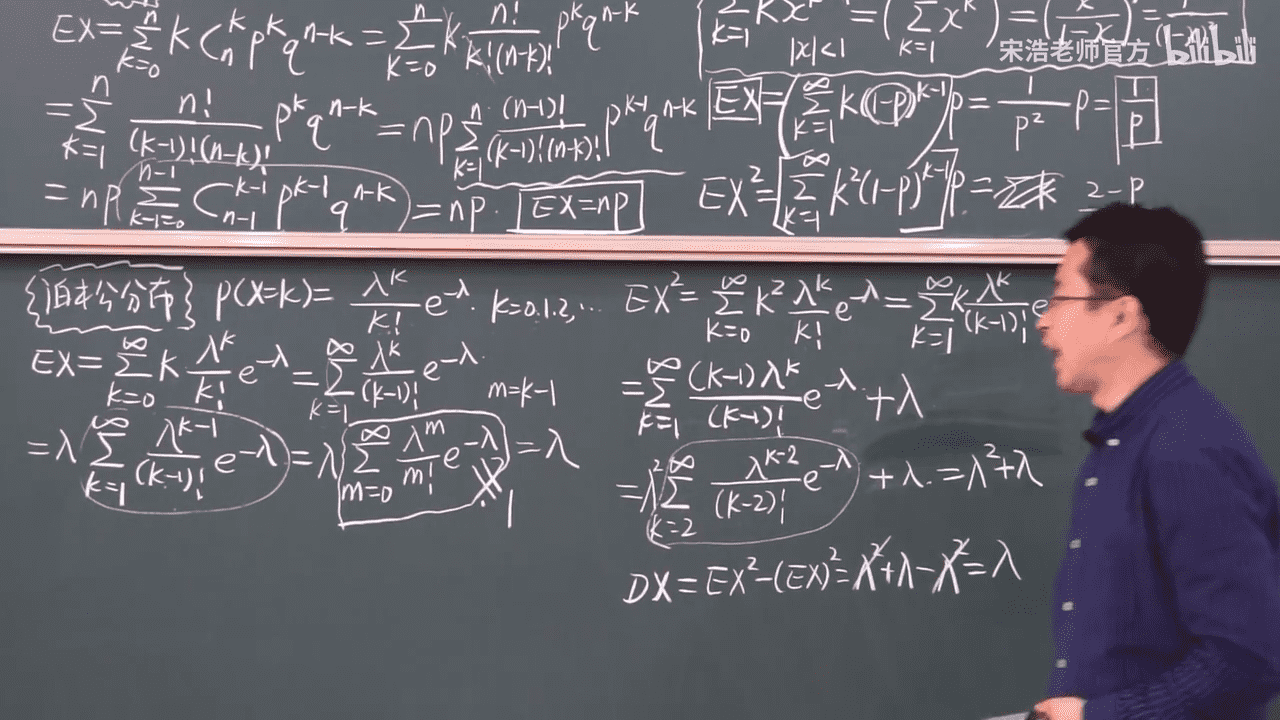 EX=∑_{k=0}^{n} k C_n^k p^k q^{n-k} = ∑_{k=0}^{n} k n!/(k!(n-k)!) p^k q^{n-k}
=∑_{k=1}^{n} n!/((k-1)!(n-k)!) p^k q^{n-k} = np ∑_{k=1}^{n} (n-1)!/((k-1)!(n-k)!) p^{k-1} q^{n-k}
= np ∑_{k-1=0}^{n-1} C_{n-1}^{k-1} p^{k-1} q^{n-k} = np. EX=np
∑_{k=1} k x = (∑_{k=1} x^k) = (x/(1-x))' = 1/(1-x)
|x|<1
宋浩老师官方 bilibili
EX=(∑_{k=1}^{∞} k(1-p)^{k-1})p = 1/p² p = 1/p
EX²=∑_{k=1}^{∞} k²(1-p)^{k-1} p = 2-p
泊松分布 P(X=k)= λ^k/k! e^{-λ}. k=0.1.2,…
EX=∑_{k=0}^{∞} k λ^k/k! e^{-λ} = ∑_{k=1}^{∞} λ^k/(k-1)! e^{-λ}.
m=k-1
=λ ∑_{k=1}^{∞} λ^{k-1}/(k-1)! e^{-λ} = λ ∑_{m=0}^{∞} λ^m/m! e^{-λ} = λ
1
EX²=∑_{k=0}^{∞} k² λ^k/k! e^{-λ} = ∑_{k=1}^{∞} k λ^k/(k-1)! e
=∑_{k=1}^{∞} (k-1)λ^k/(k-1)! e^{-λ} + λ
=λ² ∑_{k=2}^{∞} λ^{k-2}/(k-2)! e^{-λ} + λ. = λ²+λ
DX=EX²-(EX)²=λ²+λ-λ²=λ